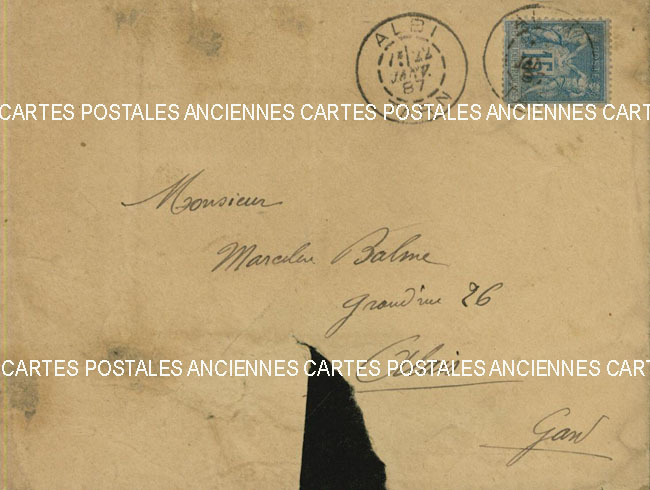 ALBI
87
TARN
15
POSTE
CARTES POSTALES ANCIENNES CARTES POSTALES ANCIENNES CART
Monsieur
Marcelin Balme
Grand'rue 26
CARTES POSTALES ANCIENNES CARTES POSTALES ANCIENNES CART
Alais
Gard